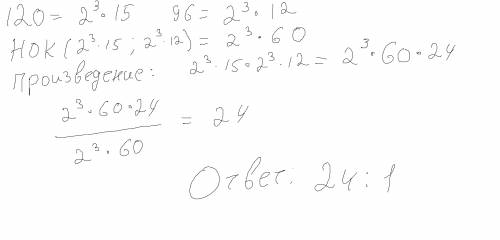 120 = 2³·15 96 = 2³·12
НОК (2³·15 ; 2³·12) = 2³·60
Произведение: 2³·15·2³·12 = 2³·60·24
2³·60·24 / 2³·60 = 24
Ответ: 24:1